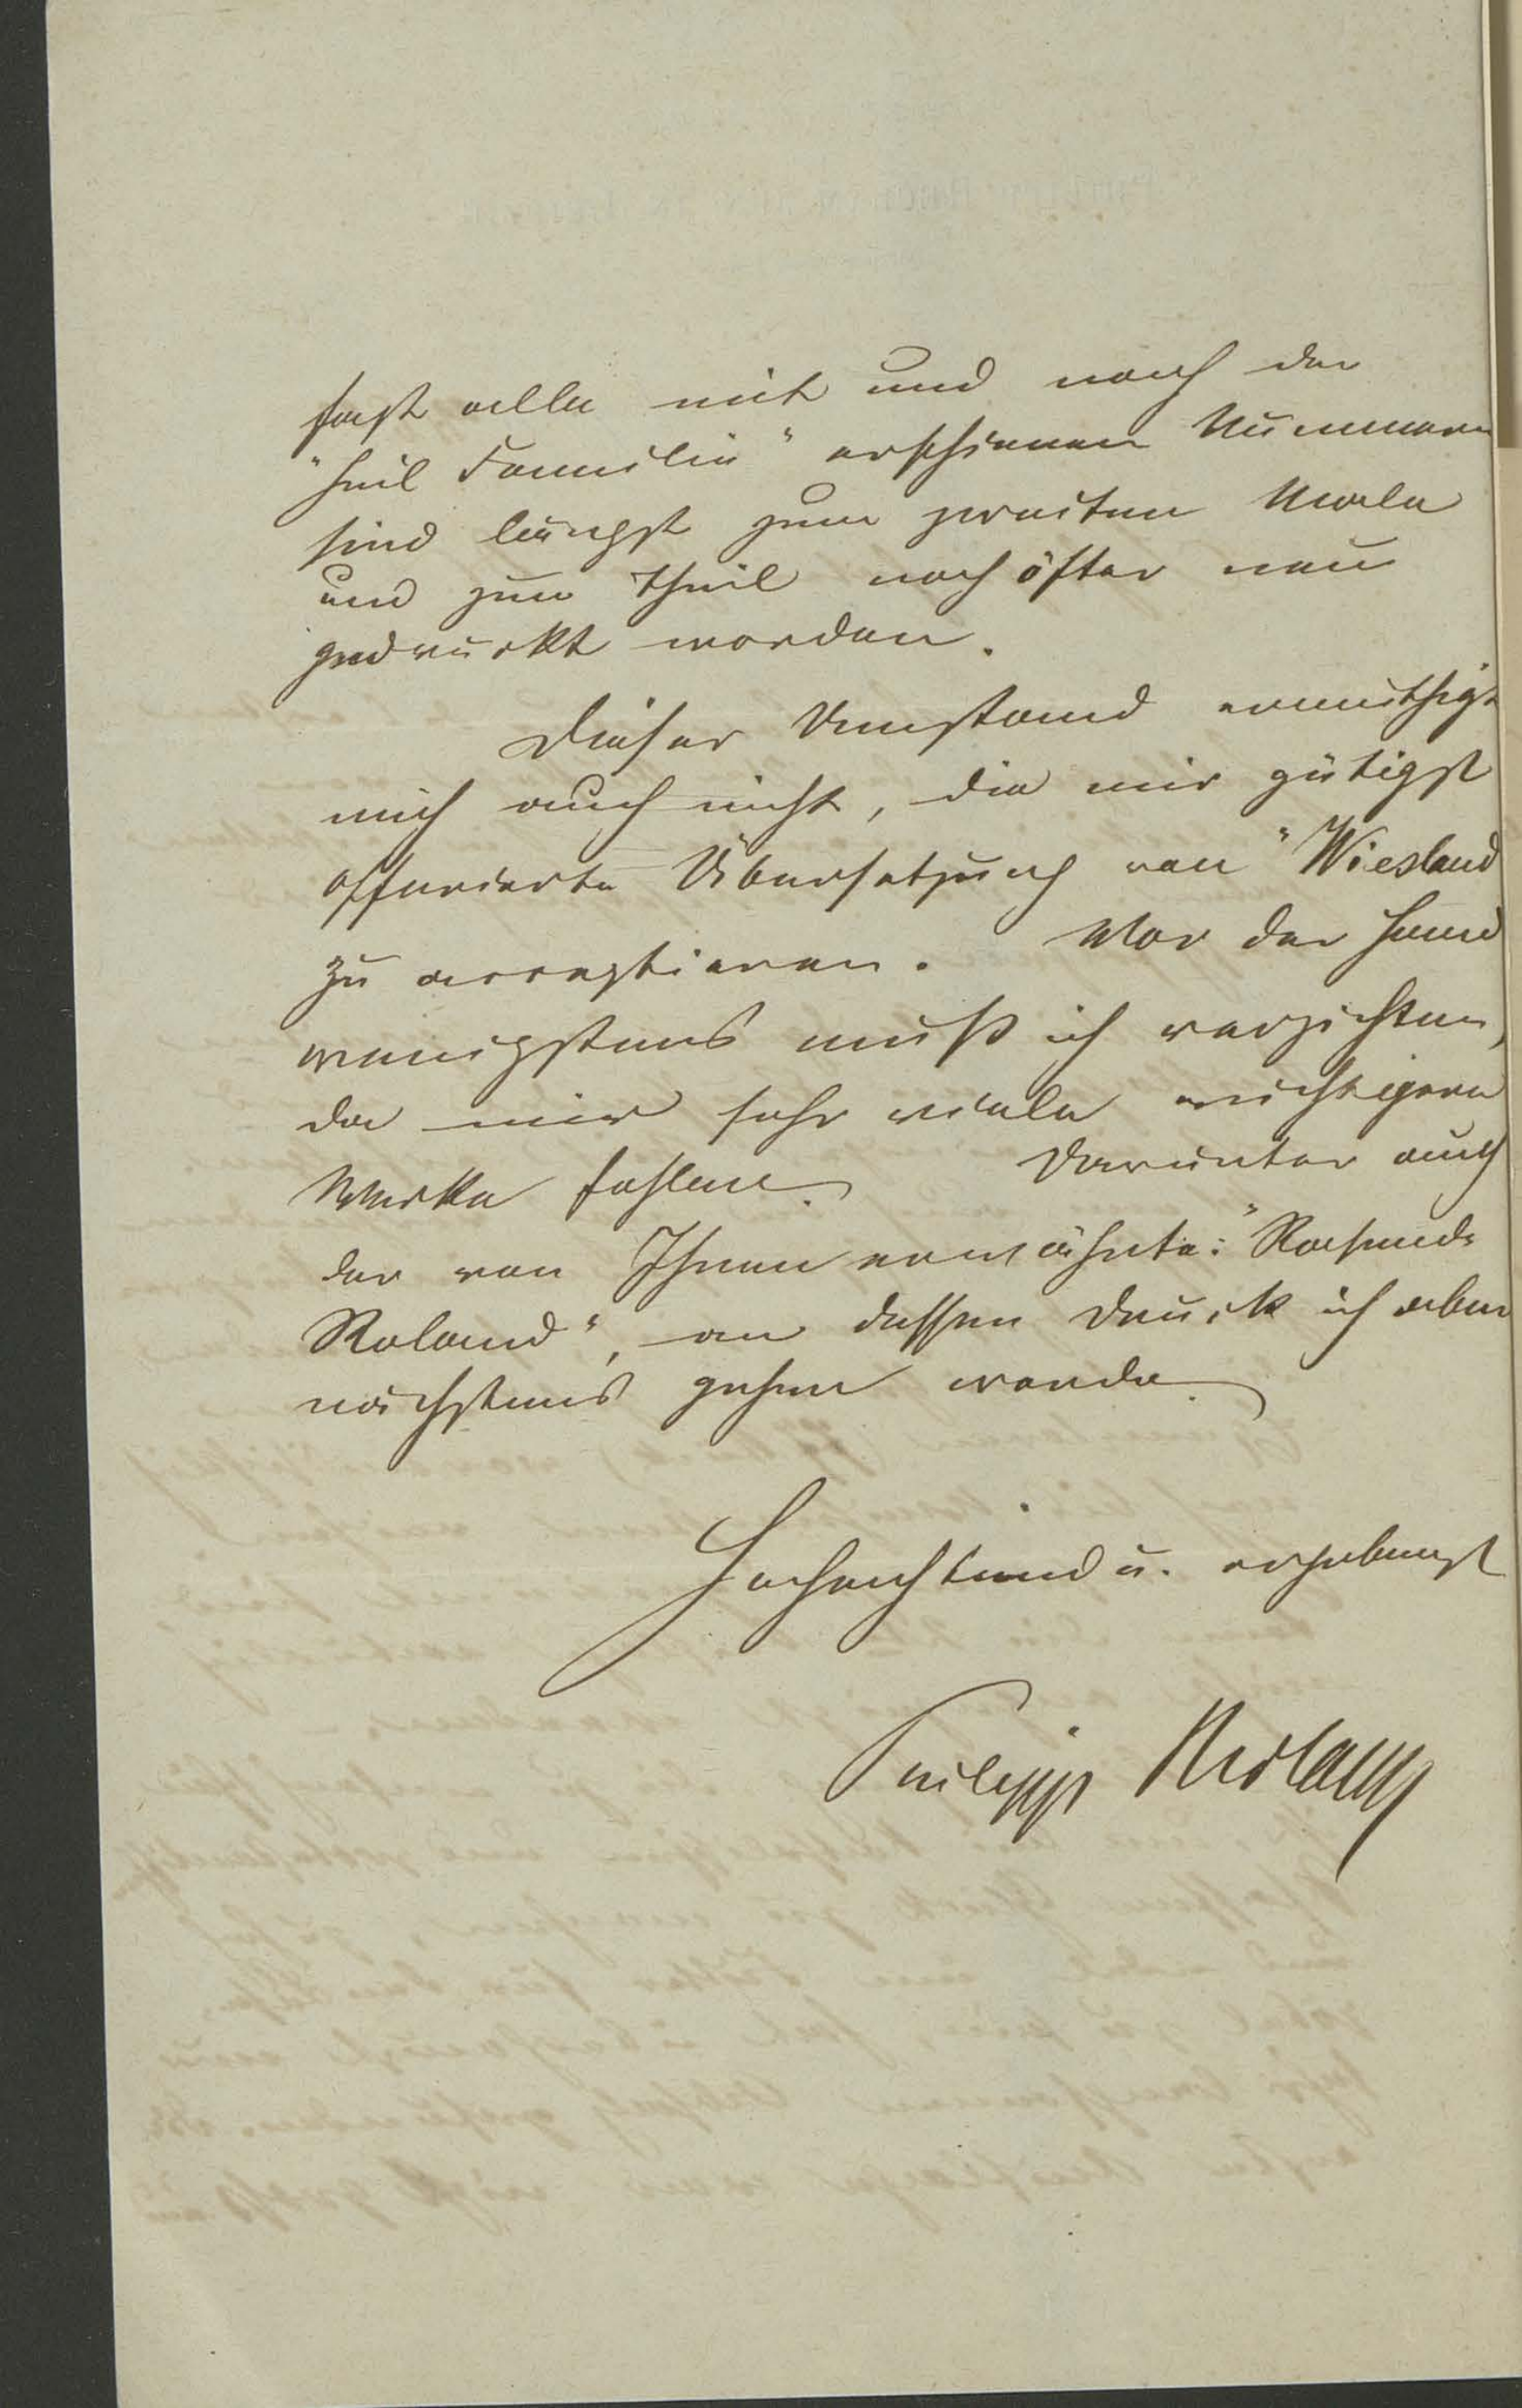 fast alle mit und nach der
"heil Familie" erschienen Nummern
sind längst zum zweiten Male
und zum Theil noch öfter neu
gedruckt worden.
Dieser Umstand ermuthigt
mich auch nicht, die mir gütigst
offerierte Übersetzung von "Wieslaus
zu acceptieren. Vor der Hand
wenigstens muß ich verzichten,
da mir sehr viele wichtigere
Werke fehlen. Darunter auch
der von Ihnen erwähnte: "Rasende
Roland", an dessen Druck ich aber
nächstens gehen werde.
Hochachtend u. ergebenst
Philipp Reclam